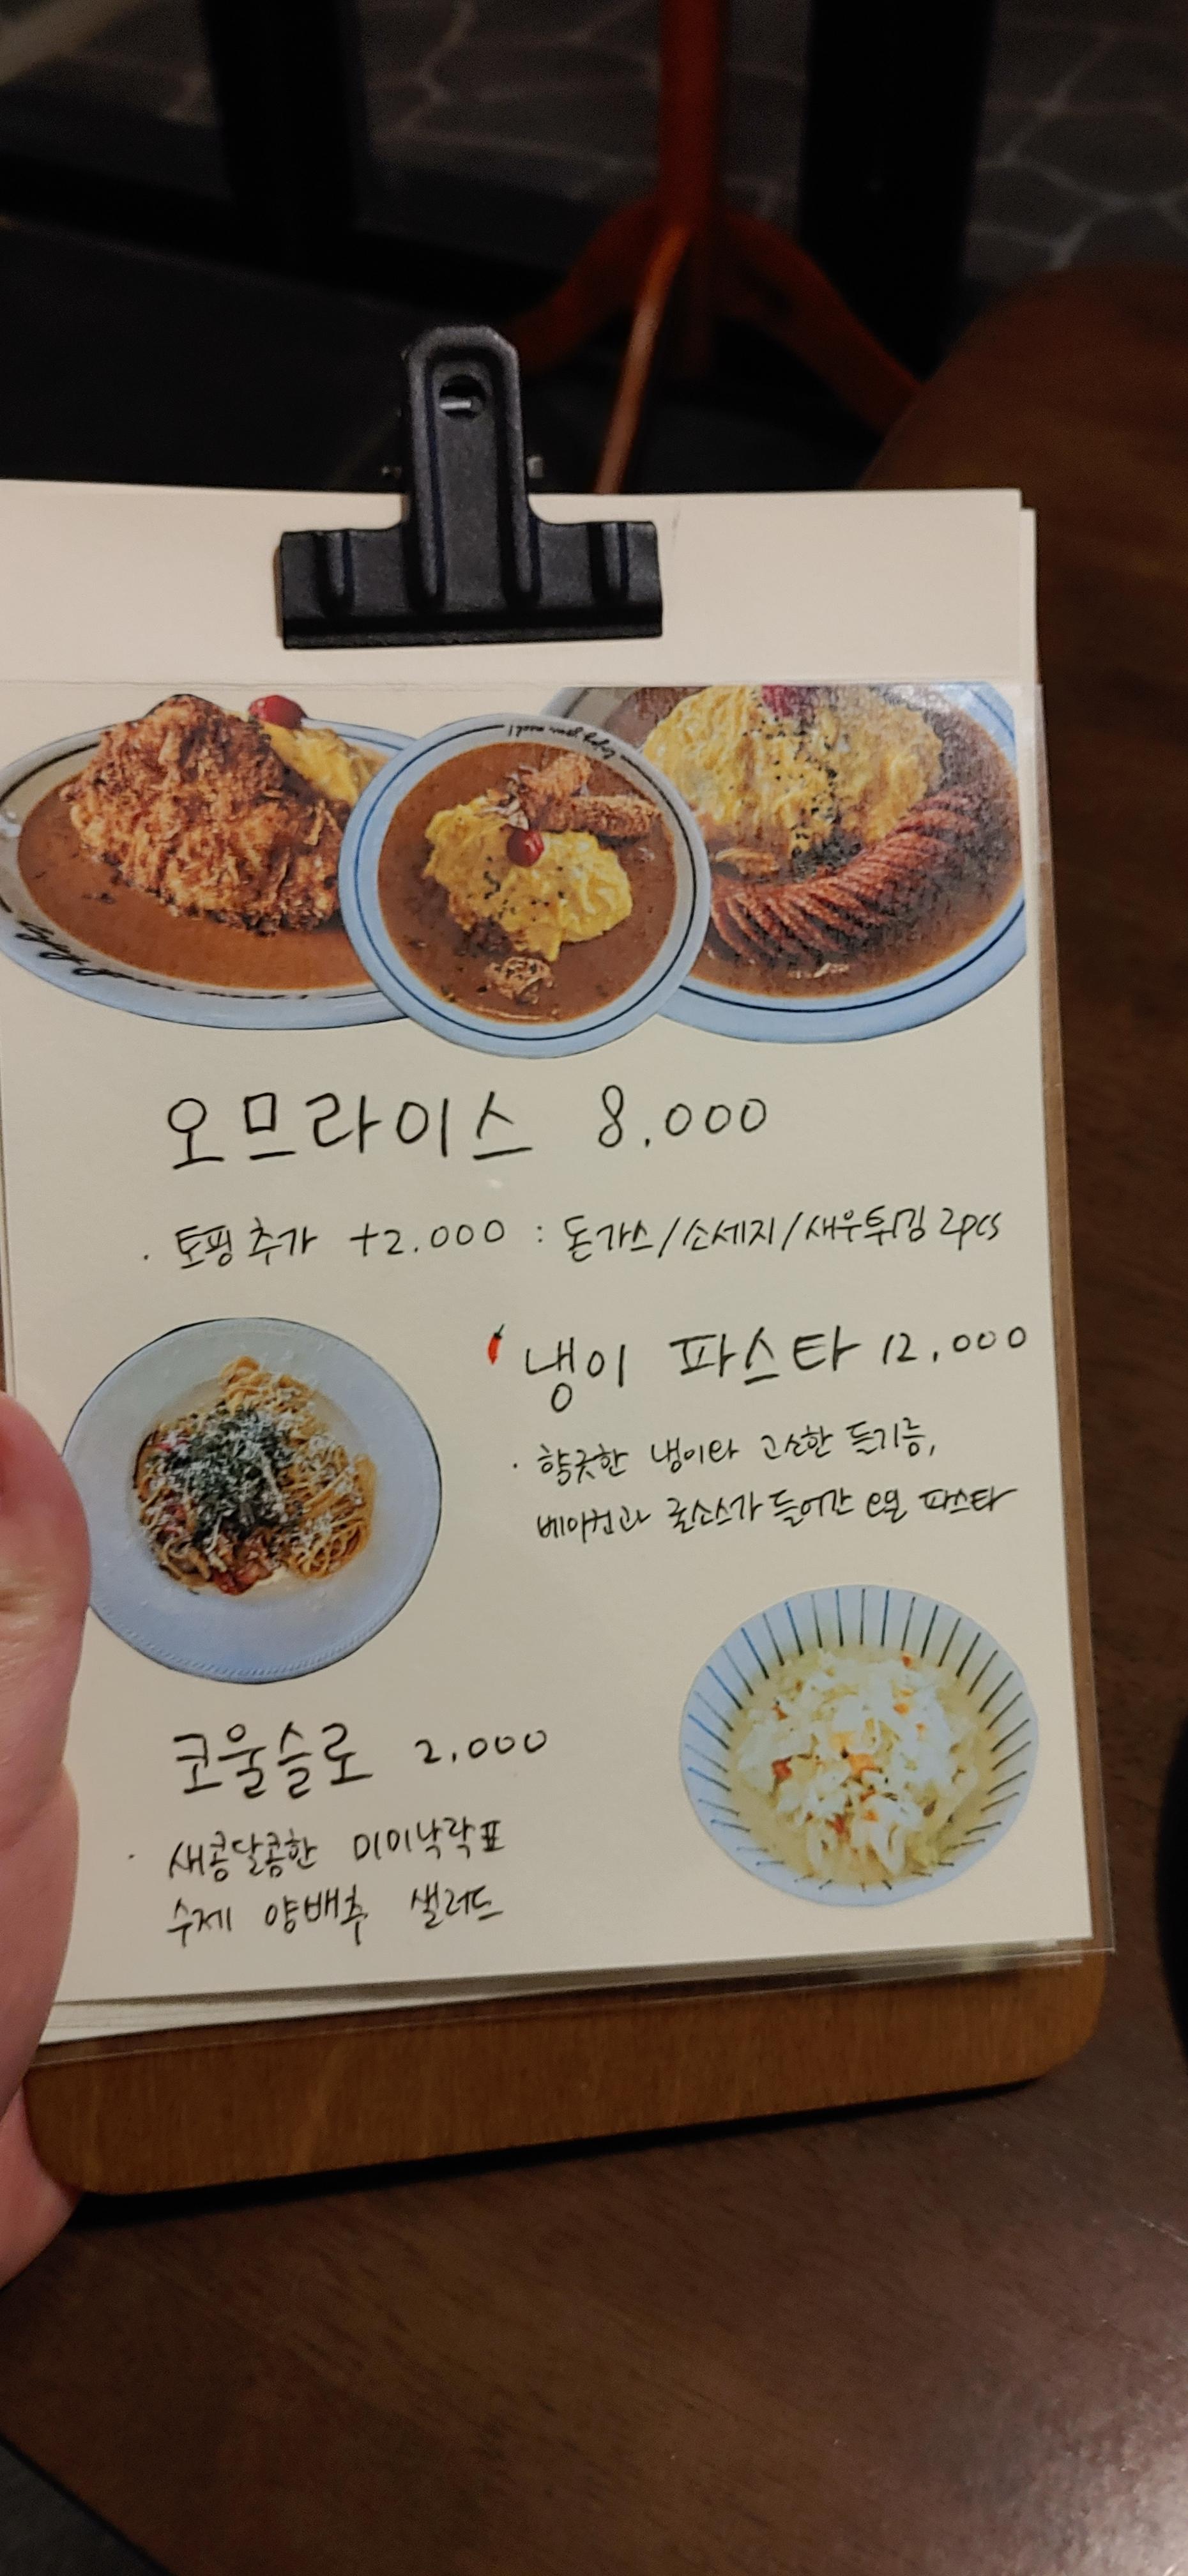 enjoy your meal!
오므라이스 8.000
· 토핑 추가 +2.000 : 돈가스/소세지/새우튀김 2pcs
냉이 파스타 12,000
· 향긋한 냉이와 고소한 들기름,
베이컨과 굴소스가 들어간 오일 파스타
코울슬로 2,000
· 새콤달콤한 미미낙락표
수제 양배추 샐러드